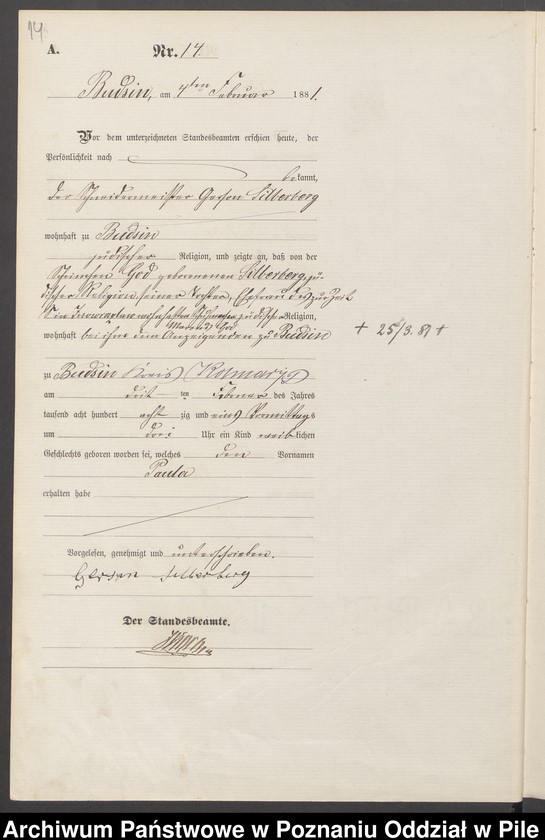 14.
A. Nr. 14.
Budsin, am 4ten Februar 1881.
Vor dem unterzeichneten Standesbeamten erschien heute, der
Persönlichkeit nach
bekannt,
der Schneidermeister Gerson Silberberg
wohnhaft zu Budsin
jüdischer Religion, und zeigte an, daß von der
God geborenen Silberberg, jü-
discher Religion, seiner Tochter, Ehefrau des zur Zeit
in wohnhaften Schneiders jüdischer Religion,
God
wohnhaft bei ihm dem Anzeigenden zu Budsin
+ 25/3. 81 +
zu Budsin Kreis Kolmar i/P
am drit ten Februar des Jahres
tausend acht hundert acht zig und eins Vormittags
um drei Uhr ein Kind weiblichen
Geschlechts geboren worden sei, welches den Vornamen
Paula
erhalten habe
Vorgelesen, genehmigt und unterschrieben.
Gerson Silberberg
Der Standesbeamte.
Archiwum Państwowe w Poznaniu Oddział w Pile